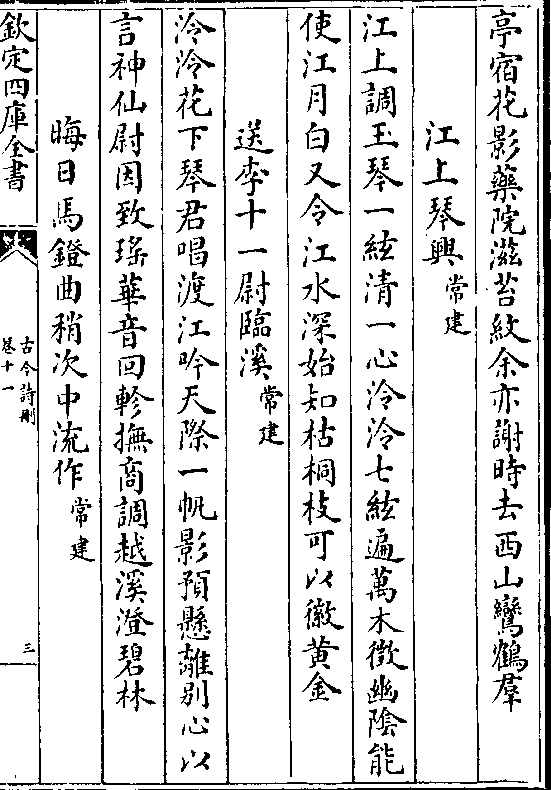 亭宿花影藥院滋苔紋余亦謝時去西山鸞鶴羣
江上琴興常建
江上調玉琴一絃清一心泠泠七絃遍萬木澂幽陰能
使江月白又令江水深始知枯桐枝可以徽黄金
送李十一尉臨溪常建
泠泠花下琴君唱渡江吟天際一帆影預懸離别心以
言神仙尉因致瑤華音回軫撫商調越溪澄碧林
晦日馬鐙曲稍次中流作常建
欽定四庫全書
古今詩刪
卷十一
三